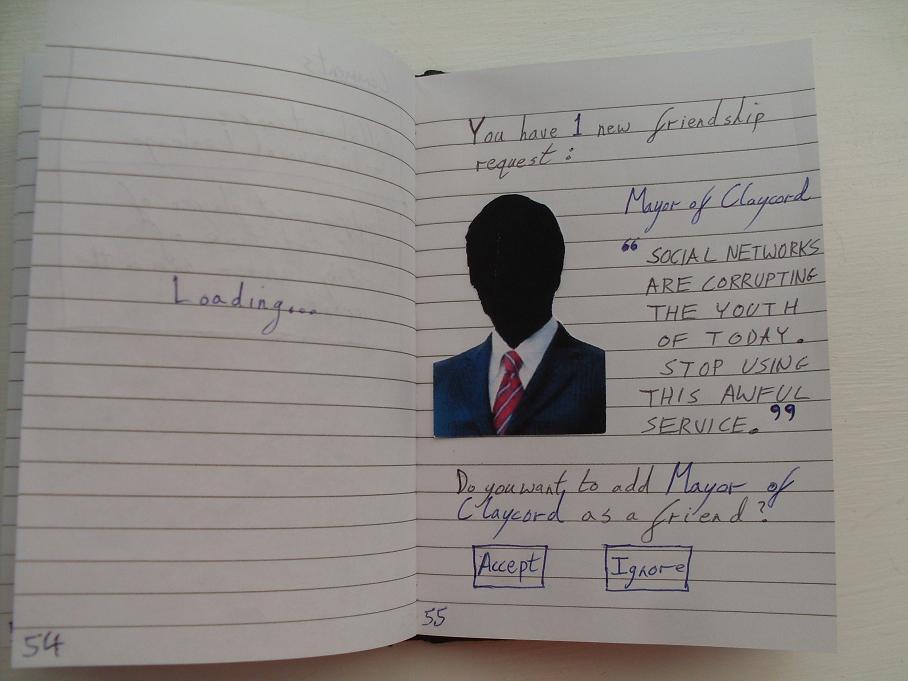 Loading...
54
You have 1 new friendship
request :
Mayor of Claycord
“ SOCIAL NETWORKS
ARE CORRUPTING
THE YOUTH
OF TODAY.
STOP USING
THIS AWFUL
SERVICE. ”
Do you want to add Mayor of
Claycord as a friend?
Accept
Ignore
55